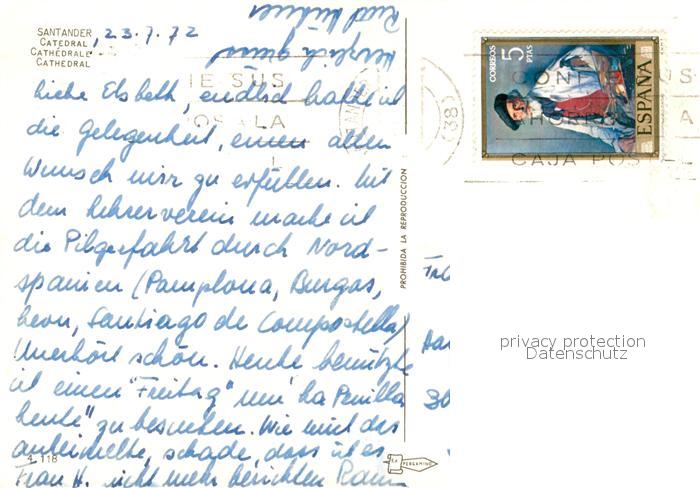 SANTANDER
CATEDRAL
CATHÉDRALE
CATHEDRAL
23.7.72
Liebe Elsbeth, endlich hatte ich
die Gelegenheit, einen alten
Wunsch mir zu erfüllen. Mit
dem Lehrerverein mache ich
die Pilgerfahrt durch Nord-
spanien (Pamplona, Burgos,
Leon, Santiago de Compostella)
Unerhört schön. Heute benützte
ich einen "Freitag" um "La Penilla
heute" zu besuchen. Wie mich das
anheimelte, schade, dass ich es
Frau H. nicht mehr berichten kann
Herzlich
4.118
PROHIBIDA LA REPRODUCCION
ED. PERGAMINO
CORREOS
5
PTAS
ESPAÑA
CONFIE SUS
AHORROS A LA
CAJA POSTAL
privacy protection
Datenschutz